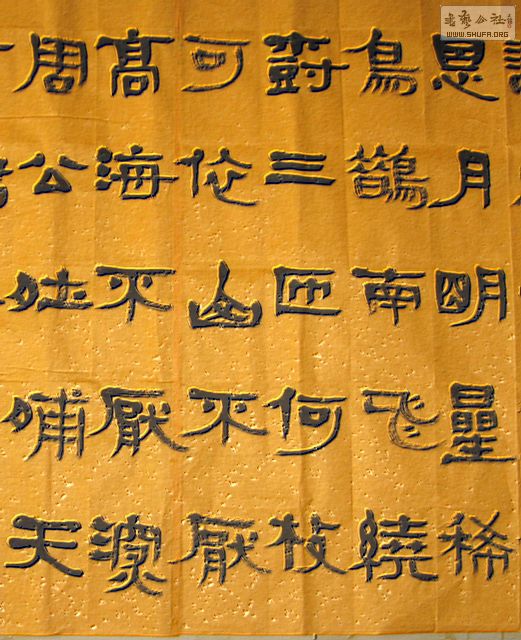 恩月明星稀
烏鵲南飞繞
樹三匝何枝
可依山不厭
高海不厭深
周公吐哺天
書藝公社
WWW.SHUFA.ORG